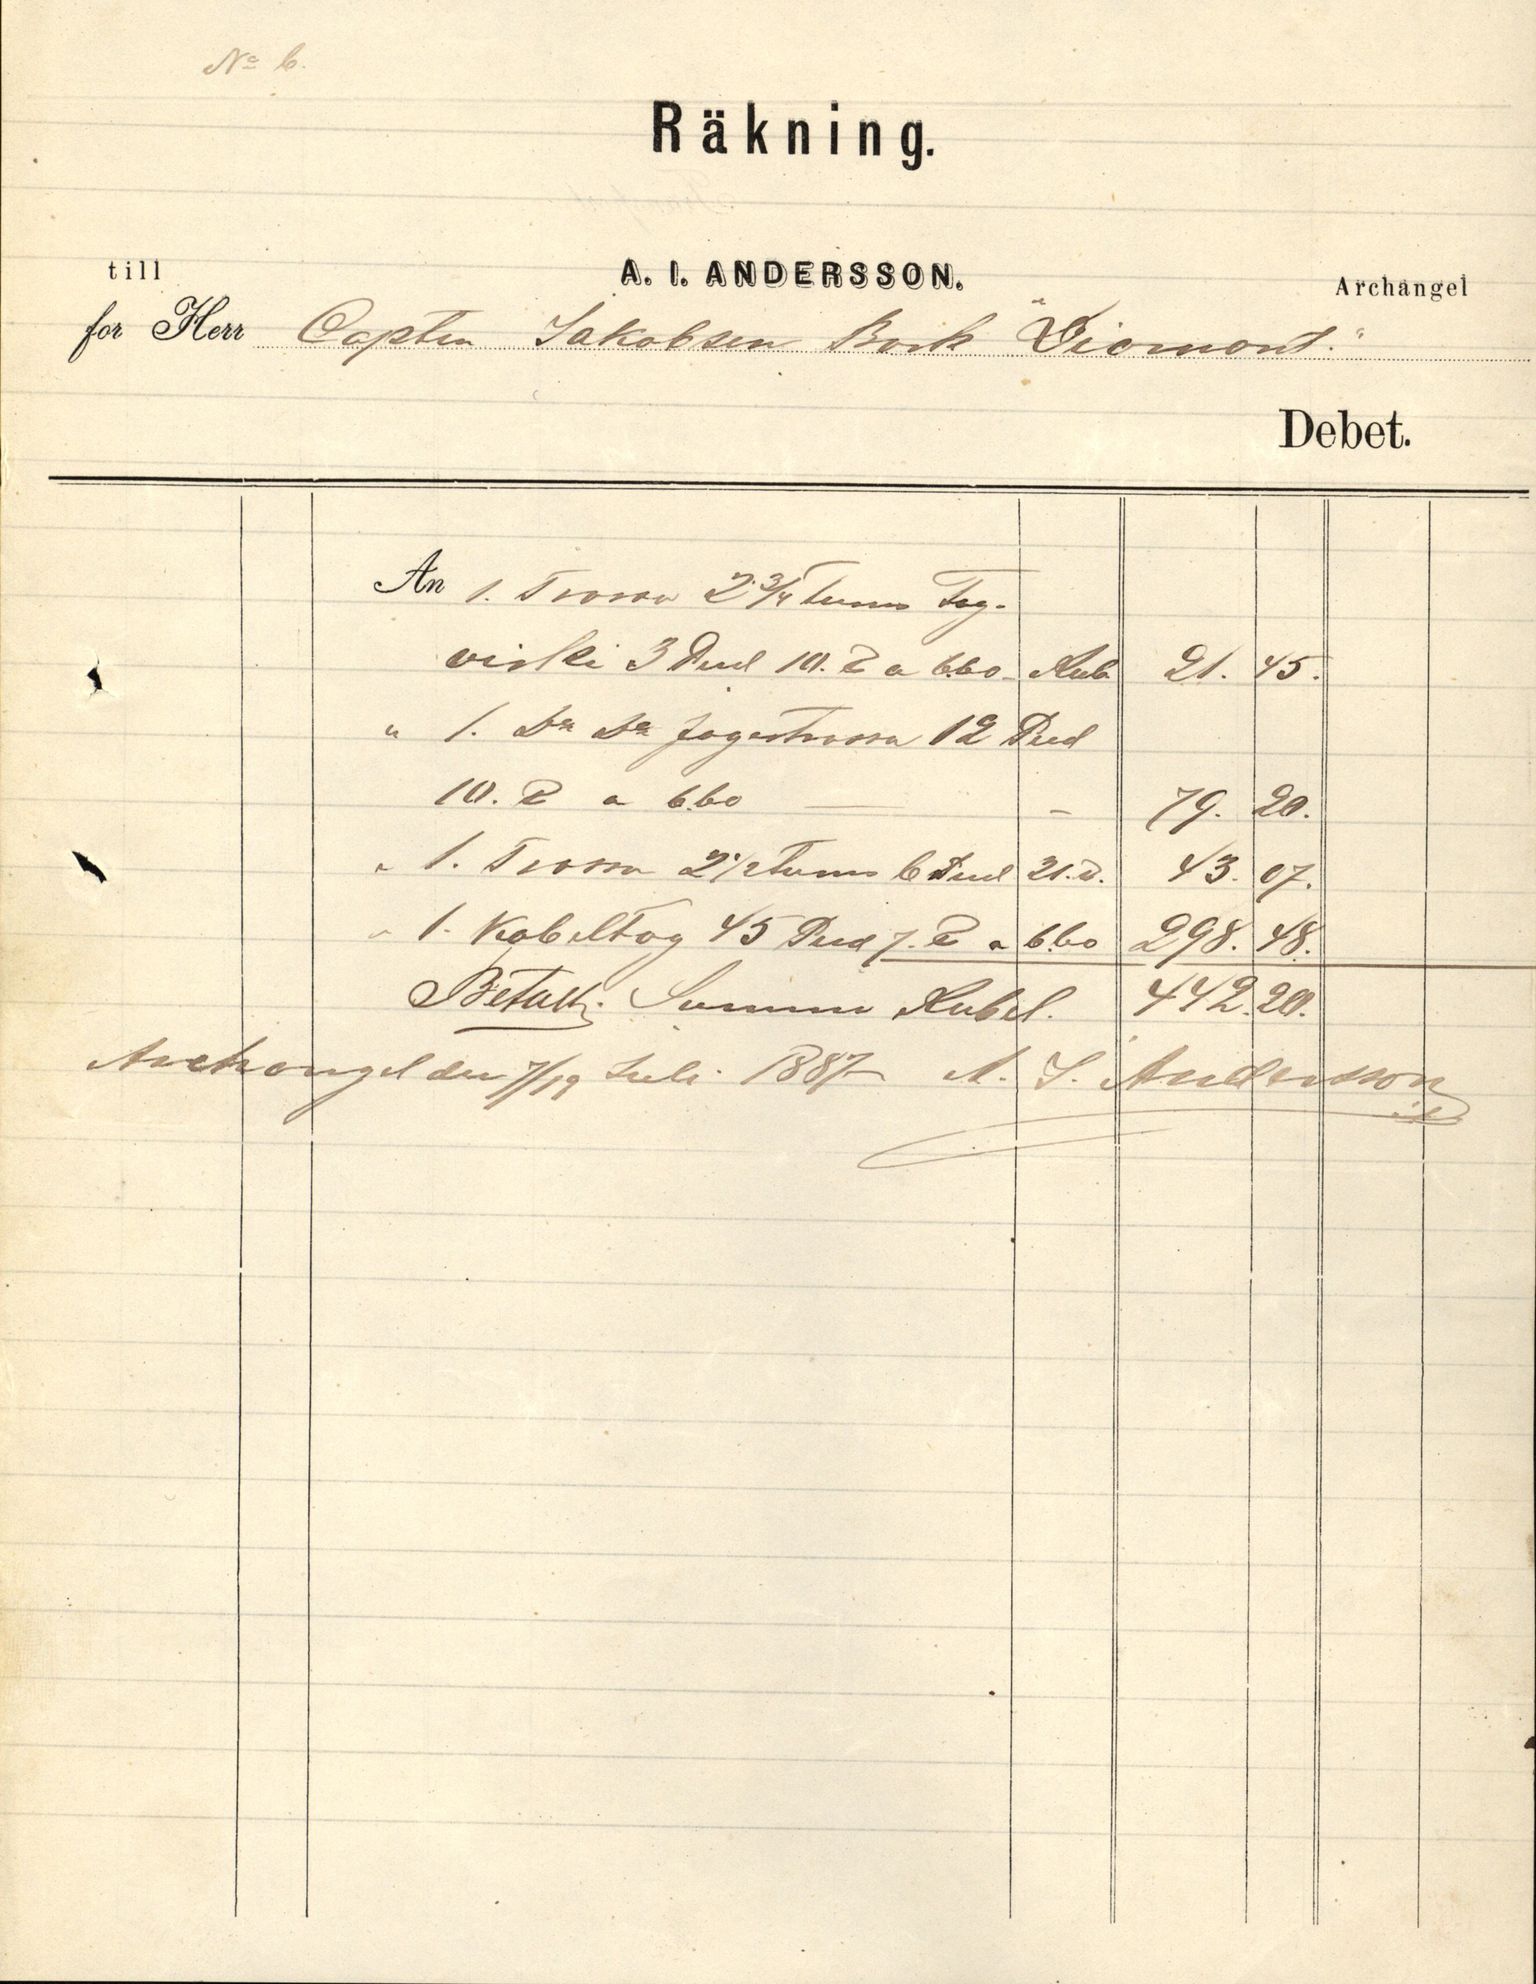 No 6.
Räkning.
till A. I. ANDERSSON. Archangel
for Herr Capten Jakobsen Bark "Diamant."
Debet.
An 1. Trossa 2 3/4 tums Tog-
virke 3 Pud 10. ℔ a 6.60 Rub 21. 45.
" 1. Do Do Jagertrossa 12 Pud
10. ℔ a 6.60 — - 79. 20.
" 1. Trossa 2 1/2 tums 6 Pud 21. ℔. 43. 07.
" 1. Kabeltog 45 Pud 7. ℔ a 6.60 298. 48.
Betalt. Summa Rubel. 442. 20.
Archangel den 7/19 Juli. 1887 A. I. Andersson